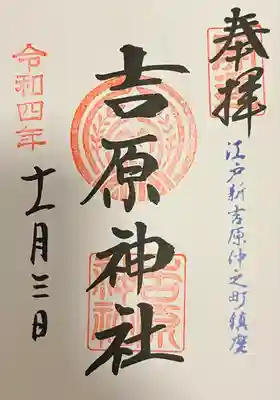 奉拝
江戸新吉原仲之町鎮座
吉原神社
令和四年
十一月三日